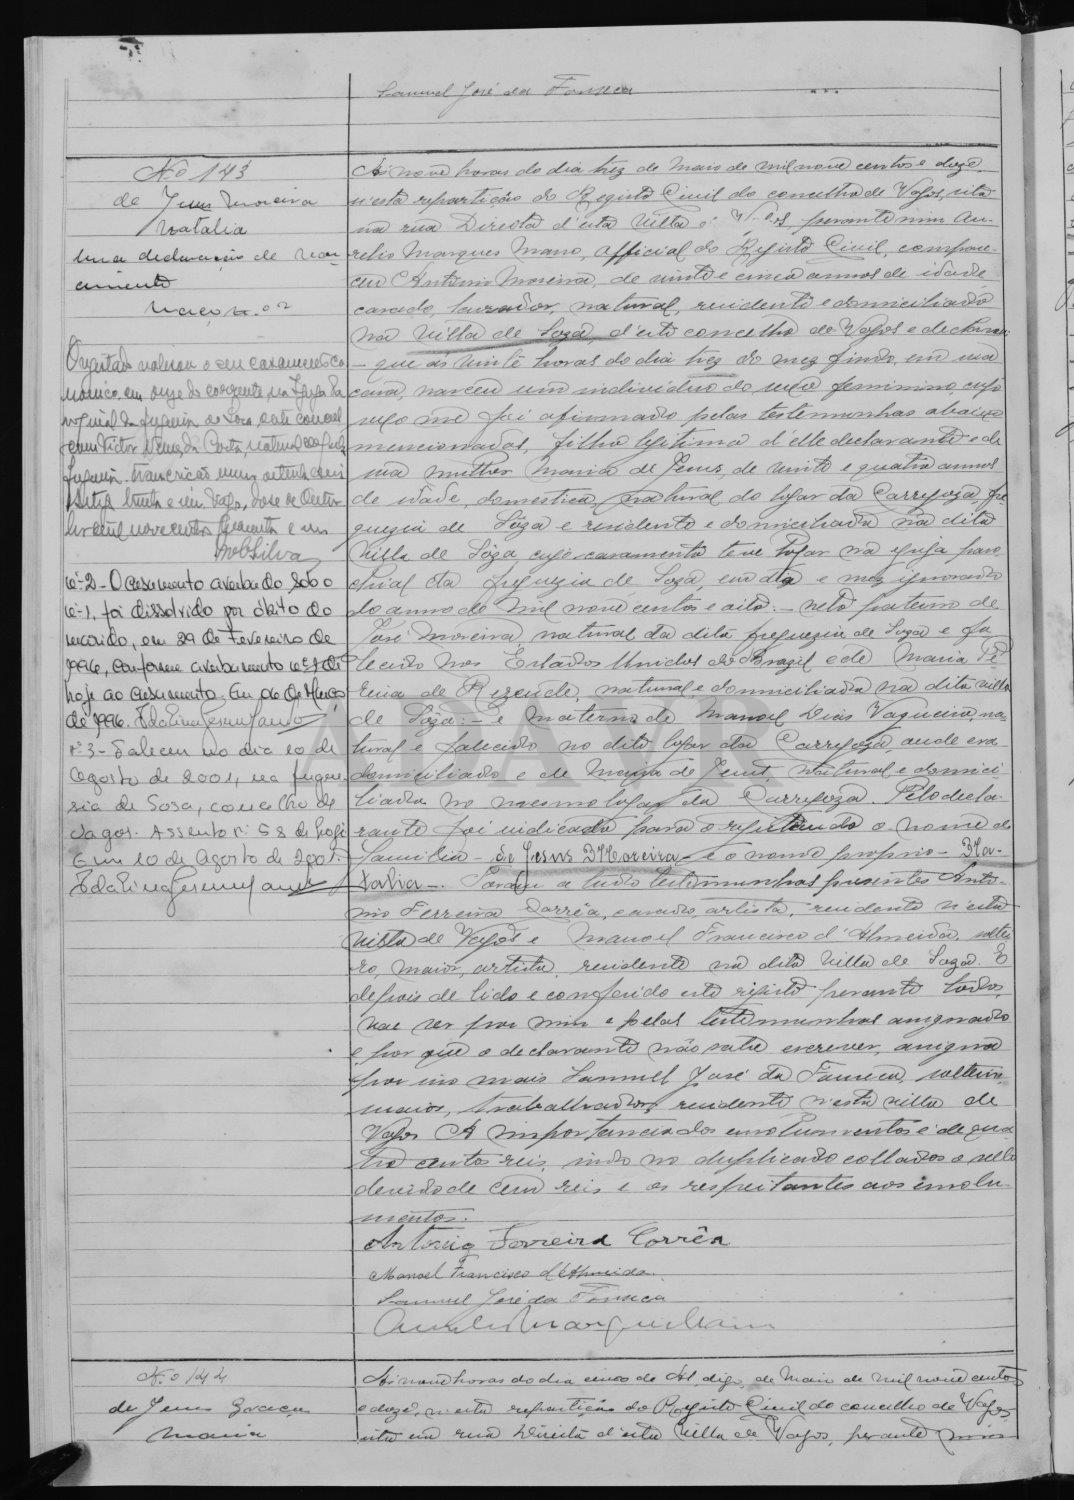 Samuel José da Fonseca
Nº 143
de Jesus Moreira
Natalia
uma declaração de nas-
cimento
O registado realisou o seu casamento ca-
nonico em onze do corrente na Igreja Pa-
roquial da freguesia de Soza deste concelho
com Victor
freguesia. transcrição numero
Vagos, doze de Outu-
bro de mil novecentos quarenta e um
MobSilva
nº-2- O casamento averbado sob o
nº-1, foi dissolvido por óbito do
marido, em 29 de Fevereiro de
1996, conforme averbamento nº 1 de
hoje ao casamento. Em 06 de Março
de 1996.
nº 3 - Faleceu no dia 10 de
Agosto de 2001, na fregue-
sia de Sosa, concelho de
Vagos. Assento nº 58 de hoje
Em 10 de Agosto de 2001.
Ás nove horas do dia trez de Maio de mil nove centos e doze
n'esta repartição do Registo Civil do concelho de Vagos, sita
na rua Direita d'esta Villa de Vagos perante mim Au-
relio Marques Mano, official do Registo Civil, compare-
ceu Antonio Moreira, de vinte e cinco annos de idade
casado, lavrador, natural, residente e domiciliado
na villa de Soza, d'este concelho de Vagos e declarou
- que ás vinte horas do dia trez do mez findo, em sua
casa, nasceu um individuo do sexo feminino, cujo
sexo me foi afirmado pelas testemunhas abaixo
mencionadas, filha legitima d'elle declarante e de
sua mulher Maria de Jesus, de vinte e quatro annos
de idade, domestica, natural do logar da Carregoza, fre-
guezia de Sôza e residente e domiciliada na dita
Villa de Sôza cujo casamento teve logar na egreja paro-
chial da freguezia de Soza, em dia e mez ignorado
do anno de mil nove centos e oito: - neto paterno de
José Moreira natural da dita freguezia de Soza e fa-
lecido nos Estados Unidos do Brazil e de Maria Pe-
reira de Rezende, natural e domiciliada na dita villa
de Sôza: - e materno de Manoel Dias Vagueiro, na-
tural e falecido no dito logar da Carregoza, onde era
domiciliado e de Maria de Jesus, natural e domici-
liada no mesmo logar da Carregoza. Pelo decla-
rante foi indicado para o registando o nome de
familia - de Jesus Moreira - e o nome proprio - Na-
talia -. Foram a tudo testemunhas presentes Anto-
nio Ferreira Corrêa, casado, artista, residente n'esta
Villa de Vagos e Manoel Francisco d'Almeida, soltei-
ro, maior, artista, residente na dita Villa de Soza. E
depois de lido e conferido este registo perante todos,
vae ser por mim e pelas testemunhas assignado
e por que o declarante não sabe escrever, assigna
por isso mais Samuel José da Fonseca, solteiro
maior, trabalhador, residente n'esta villa de
Vagos A importancia dos emolumentos é de qua-
tro centos reis, indo no duplicado collados o sello
devido de cem reis e os respeitantes aos emolu-
mentos.
Antonio Ferreira Corrêa
Manoel Francisco d'Almeida
Samuel José da Fonseca
Aurelio Marques Mano
ADAVR
Nº 144
de Jesus
Maria
Ás nove horas do dia cinco de Ab, digo, de Maio de mil nove centos
e doze, n'esta repartição do Registo Civil do concelho de Vagos
sita na rua Direita d'esta Villa de Vagos, perante mim